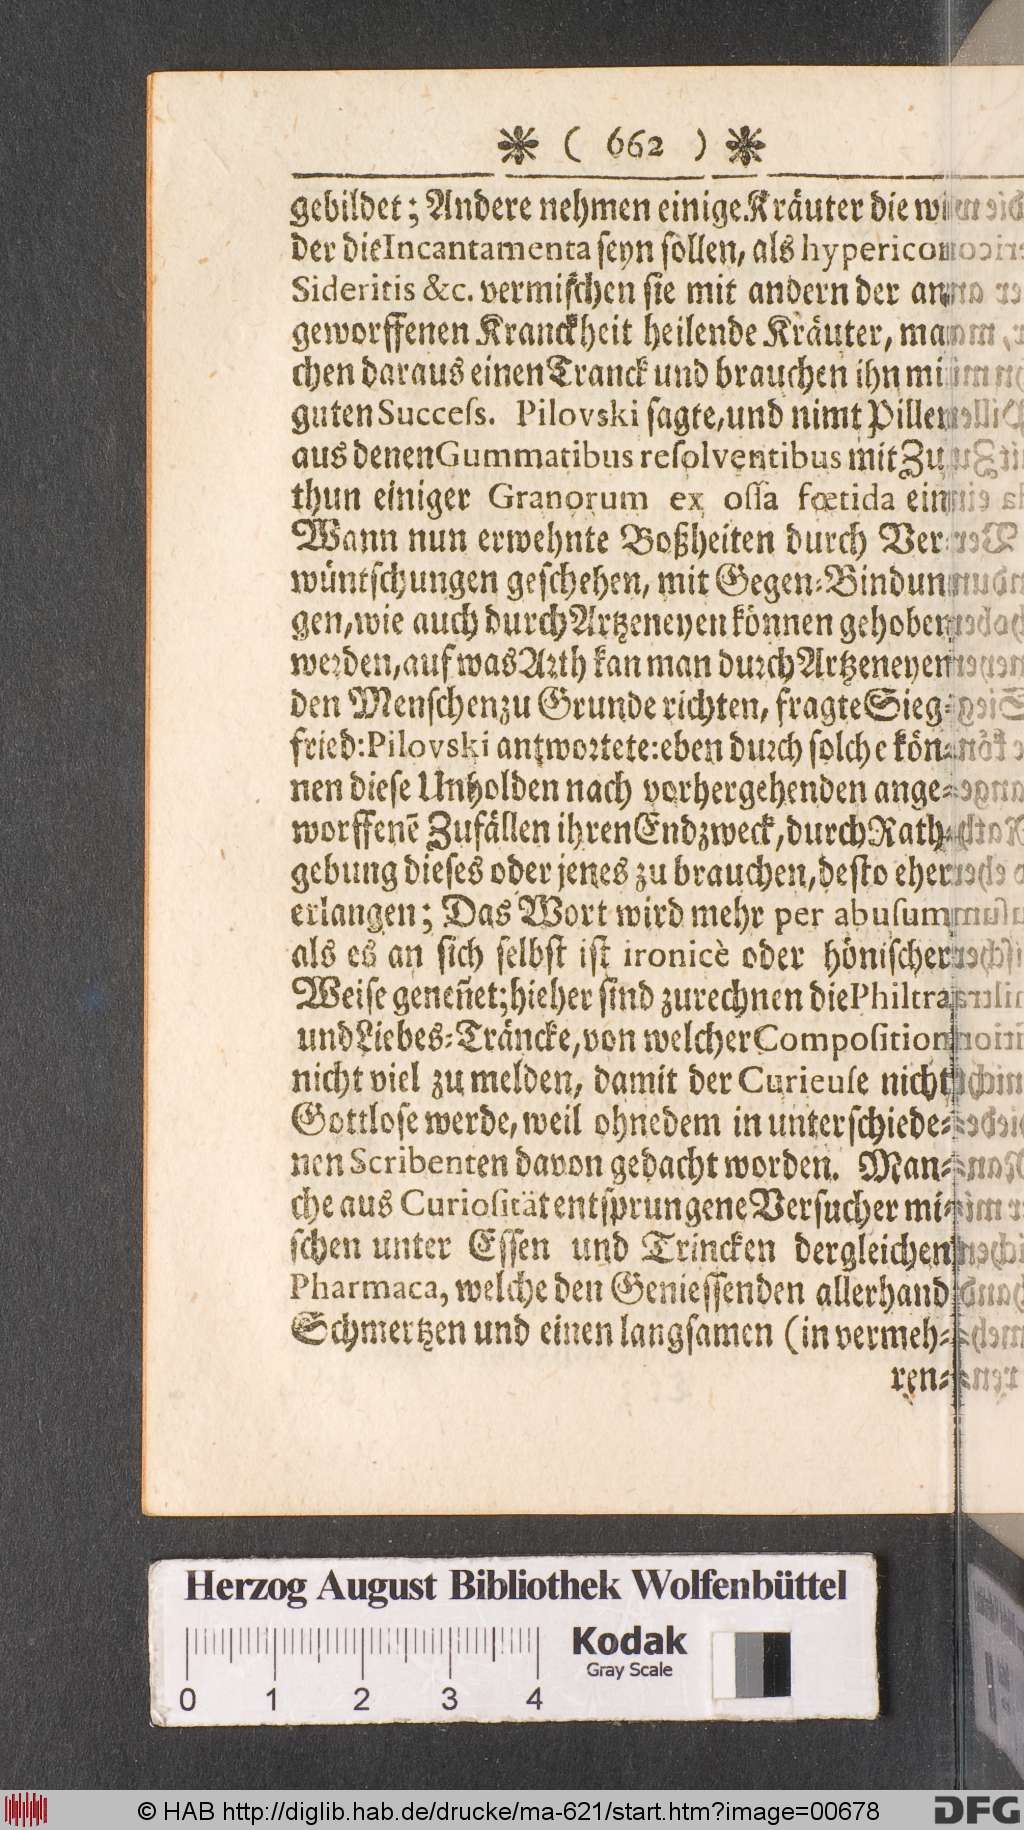 ❋ ( 662 ) ❋
gebildet; Andere nehmen einige Kräuter die wi
der die Incantamenta seyn sollen, als hyperico
Sideritis &c. vermischen sie mit andern der an
geworffenen Kranckheit heilende Kräuter, ma
chen daraus einen Tranck und brauchen ihn mi
guten Succeſs. Pilovski sagte, und nimt Pillen
aus denen Gummatibus reſolventibus mit Zu
thun einiger Granorum ex oſſa fœtida ein
Wann nun erwehnte Boßheiten durch Ver
wüntschungen geschehen, mit Gegen-Bindun
gen, wie auch durch Artzeneyen können gehoben
werden, auf was Arth kan man durch Artzeneyen
den Menschen zu Grunde richten, fragte Sieg-
fried: Pilovski antwortete: eben durch solche kön-
nen diese Unholden nach vorhergehenden ange-
worffenē Zufällen ihren Endzweck, durch Rath-
gebung dieses oder jenes zu brauchen, desto eher
erlangen; Das Wort wird mehr per abuſum
als es an sich selbst ist ironicè oder hönischer
Weise geneñet; hieher sind zurechnen die Philtra
und Liebes-Träncke, von welcher Compoſition
nicht viel zu melden, damit der Curieuſe nicht
Gottlose werde, weil ohnedem in unterschiede-
nen Scribenten davon gedacht worden. Man-
che aus Curioſität entsprungene Versucher mi-
schen unter Essen und Trincken dergleichen
Pharmaca, welche den Geniessenden allerhand
Schmertzen und einen langsamen (in vermeh-
ren-
Herzog August Bibliothek Wolfenbüttel
Kodak
Gray Scale
0 1 2 3 4
© HAB http://diglib.hab.de/drucke/ma-621/start.htm?image=00678
DFG